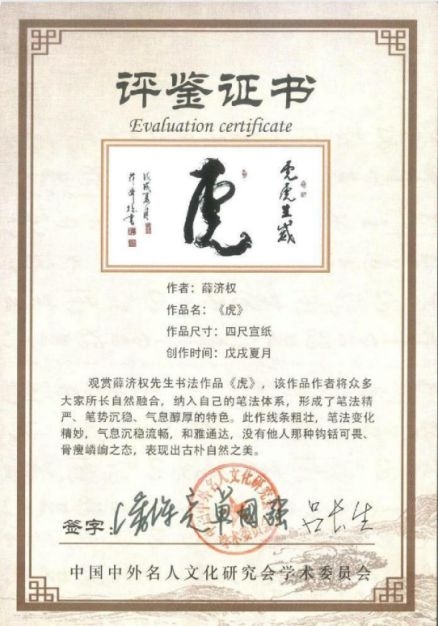 评鉴证书
Evaluation certificate
虎虎生威
虎
戊戌夏月
作者：薛济权
作品名：《虎》
作品尺寸：四尺宣纸
创作时间：戊戌夏月
观赏薛济权先生书法作品《虎》，该作品作者将众多
大家所长自然融合，纳入自己的笔法体系，形成了笔法精
严、笔势沉稳、气息醇厚的特色。此作线条粗壮，笔法变化
精妙，气息沉稳流畅，和雅通达，没有他人那种钩铦可畏、
骨瘦嶙峋之态，表现出古朴自然之美。
签字：
吕长生
中国中外名人文化研究会学术委员会